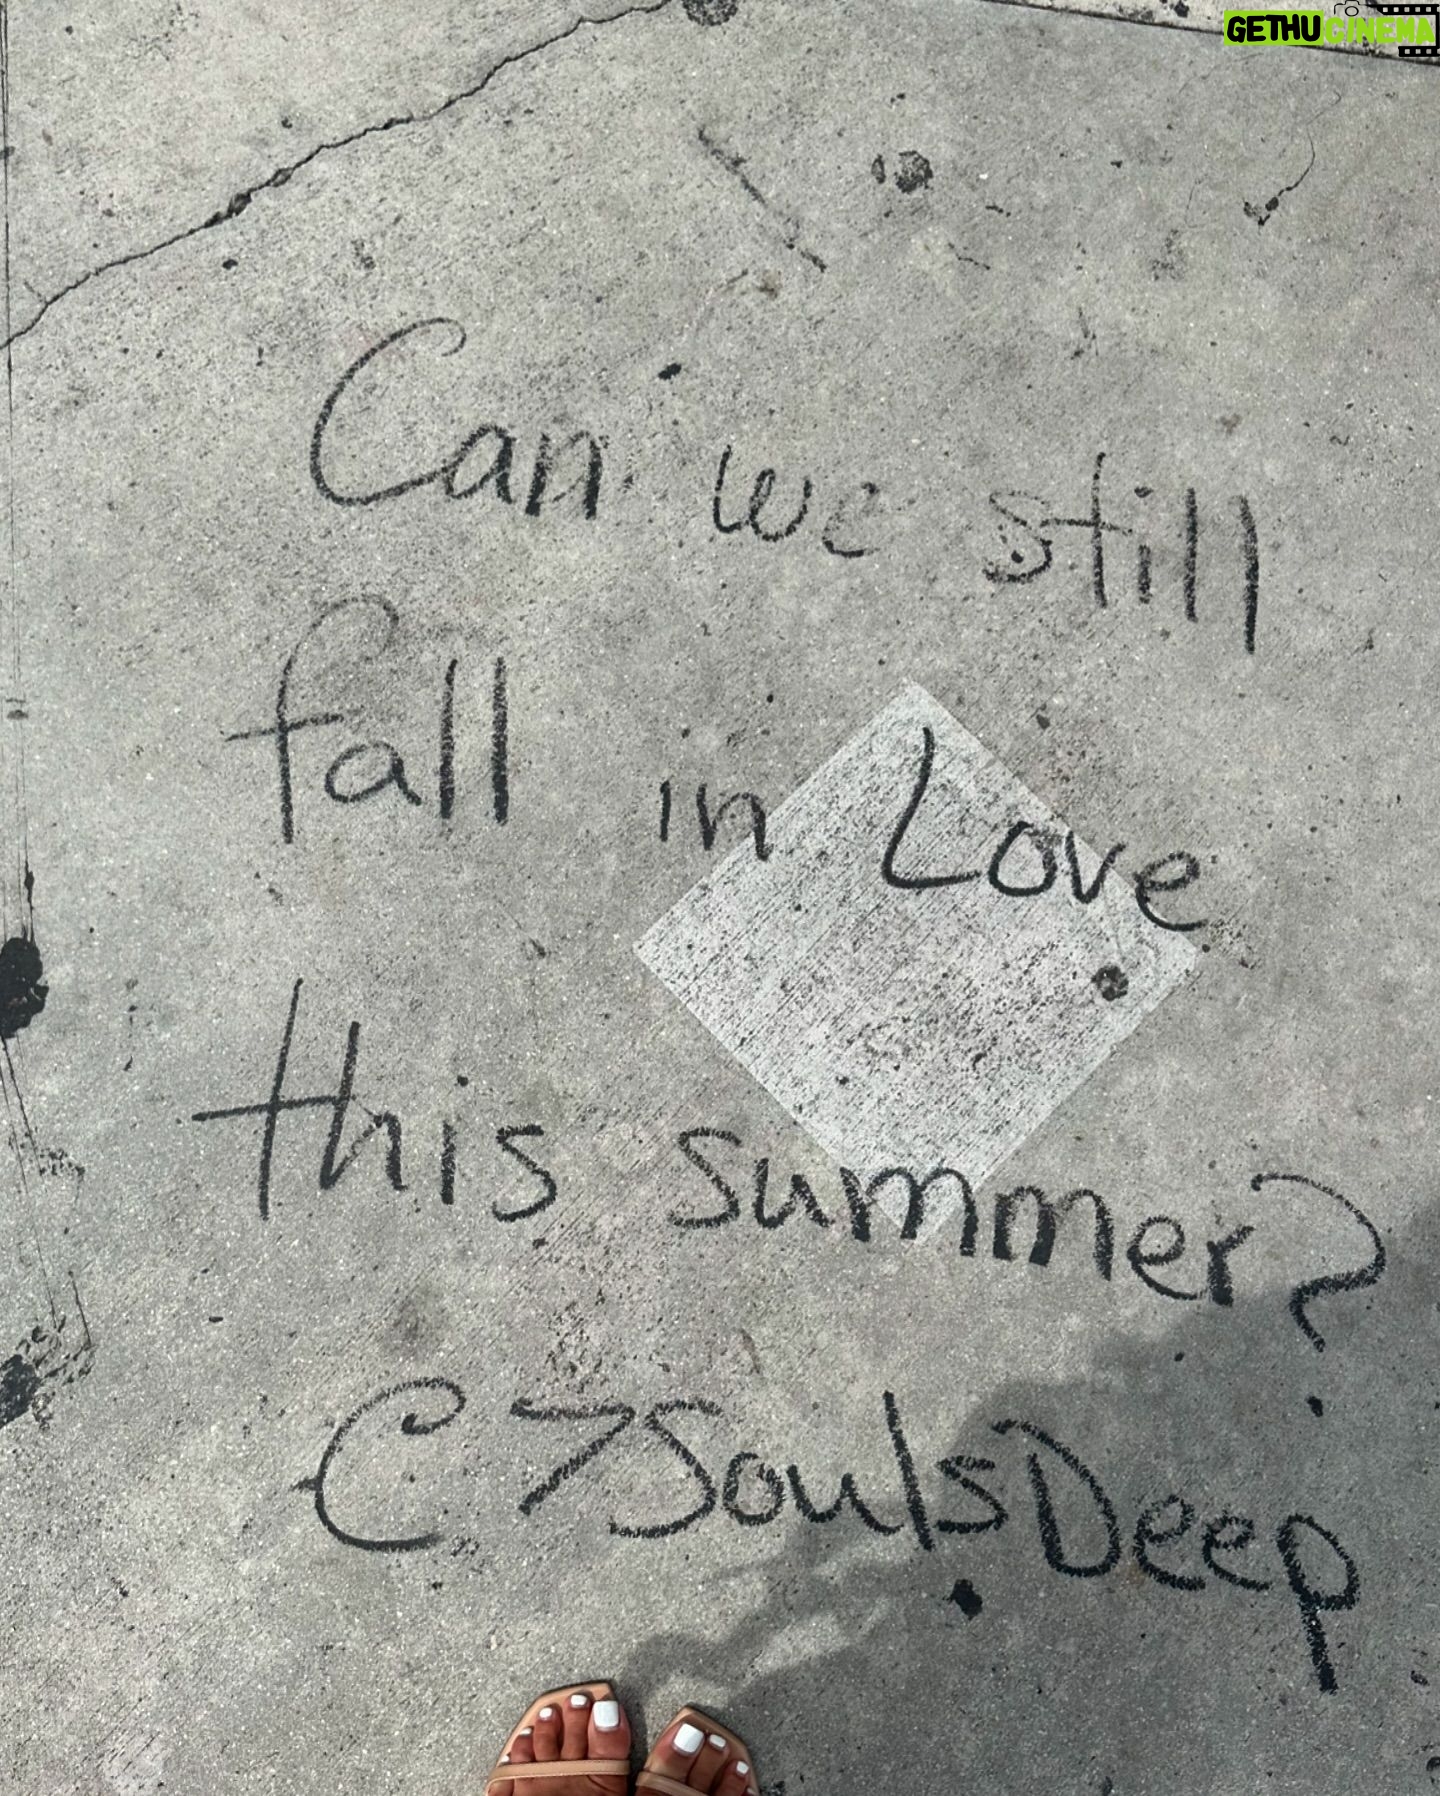 GETHUCINEMA
Can we still
fall in Love
this summer?
C 7SoulsDeep